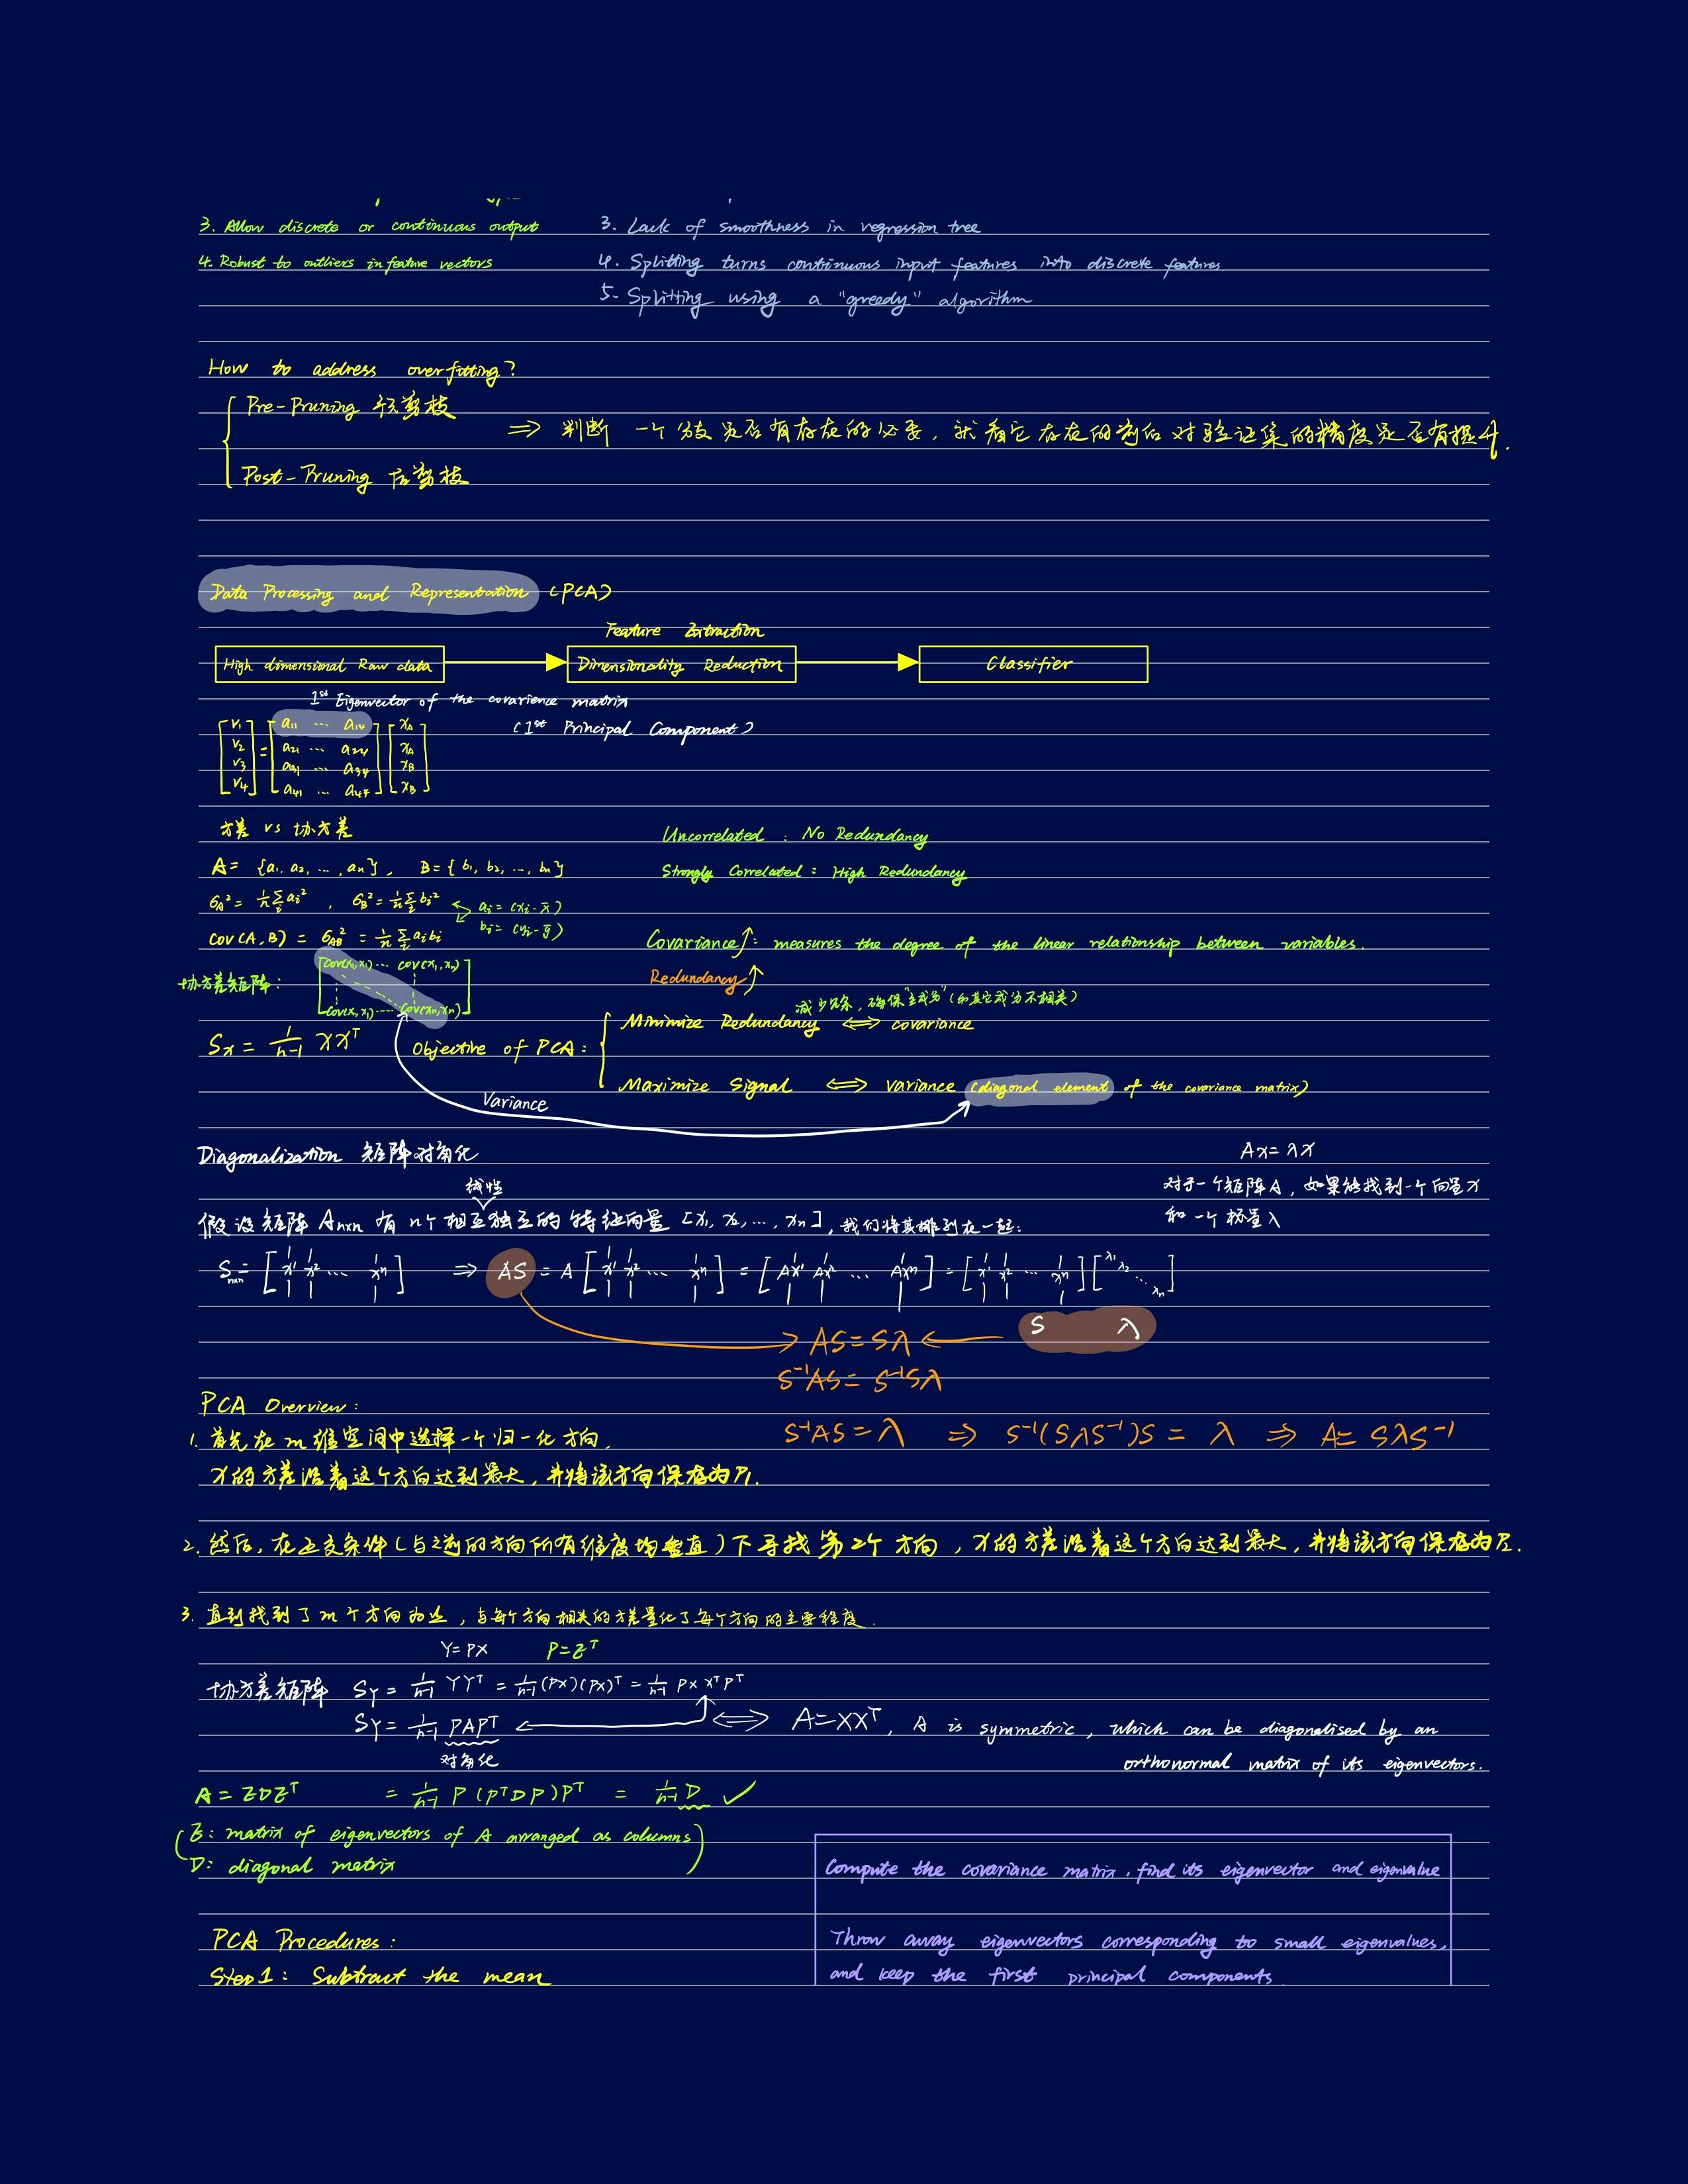 3. Allow discrete or continuous output
4. Robust to outliers in feature vectors
3. Lack of smoothness in regression tree
4. Splitting turns continuous input features into discrete features
5. Splitting using a "greedy" algorithm
How to address overfitting?
Pre-Pruning 预剪枝
⇒ 判断一个分支是否有存在的必要，就看它存在的前后对验证集的精度是否有提升.
Post-Pruning 后剪枝
Data Processing and Representation (PCA)
Feature Extraction
High dimensional Raw data
Dimensionality Reduction
Classifier
1st Eigenvector of the covarience matrix
(1st Principal Component)
[v1 v2 v3 v4] = [a11 ... a14 a21 ... a24 a31 ... a34 a41 ... a44] [xA xA xB xB]
方差 vs 协方差
A = {a1, a2, ..., an}, B = {b1, b2, ..., bn}
σA² = 1/n Σi ai², σB² = 1/n Σi bi²
ai = (xi - x̄)
bi = (yi - ȳ)
cov(A, B) = σAB² = 1/n Σi ai bi
Uncorrelated : No Redundancy
Strongly Correlated : High Redundancy
Covariance↑: measures the degree of the linear relationship between variables.
Redundancy↑
协方差矩阵: [cov(x1,x1) ... cov(x1,xn) cov(xn,x1) ... cov(xn,xn)]
减少冗余，确保"主成分"(和其它成分不相关)
Sx = 1/(n-1) XXᵀ
Objective of PCA:
Minimize Redundancy ⇔ covariance
Maximize Signal ⇔ variance (diagonal element of the covariance matrix)
Variance
Diagonalization 矩阵对角化
Ax = λx
对于一个矩阵A，如果能找到一个向量x
和一个标量λ
线性
假设矩阵 An×n 有 n个相互独立的特征向量 [x1, x2, ..., xn], 我们将其排列在一起:
Sn×n = [x¹ x² ... xⁿ] ⇒ AS = A [x¹ x² ... xⁿ] = [Ax¹ Ax² ... Axⁿ] = [x¹ x² ... xⁿ] [λ1 λ2 ... λn]
S λ
AS = Sλ
S⁻¹AS = S⁻¹Sλ
S⁻¹AS = λ ⇒ S⁻¹(SλS⁻¹)S = λ ⇒ A = SλS⁻¹
PCA Overview:
1. 首先在m维空间中选择一个归一化方向,
x的方差沿着这个方向达到最大, 并将该方向保存为P1.
2. 然后, 在正交条件(与之前的方向所有维度均垂直)下寻找第2个方向, x的方差沿着这个方向达到最大, 并将该方向保存为P2.
3. 直到找到了m个方向为止, 与每个方向相关的方差量化了每个方向的主要程度.
Y = PX P = Zᵀ
协方差矩阵 SY = 1/(n-1) YYᵀ = 1/(n-1) (PX)(PX)ᵀ = 1/(n-1) PXXᵀPᵀ
SY = 1/(n-1) PAPᵀ ⇔ A = XXᵀ, A is symmetric, which can be diagonalised by an
orthonormal matrix of its eigenvectors.
对角化
A = ZDZᵀ = 1/(n-1) P(PᵀDP)Pᵀ = 1/(n-1) D ✓
Z: matrix of eigenvectors of A arranged as columns
D: diagonal matrix
Compute the covariance matrix, find its eigenvector and eigenvalue
Throw away eigenvectors corresponding to small eigenvalues,
and keep the first principal components.
PCA Procedures:
Step 1: Subtract the mean